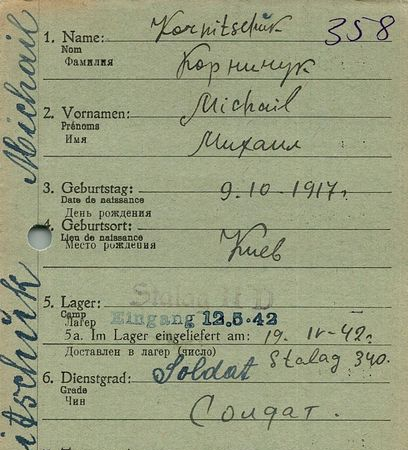 358
1. Name: Kornitschük
Nom
Фамилия Корничук
2. Vornamen: Michail
Prénoms
Имя Михаил
3. Geburtstag: 9.10-1917г.
Date de naissance
День рождения
4. Geburtsort:
Lieu de naissance
Место рождения Киев
5. Lager: Stalag II D
Camp
Лагер Eingang 12.5.42
5a. Im Lager eingeliefert am: 19. IV-42г.
Доставлен в лагер (число) Stalag 340.
6. Dienstgrad: Soldat
Grade
Чин Солдат.
itschük Michail